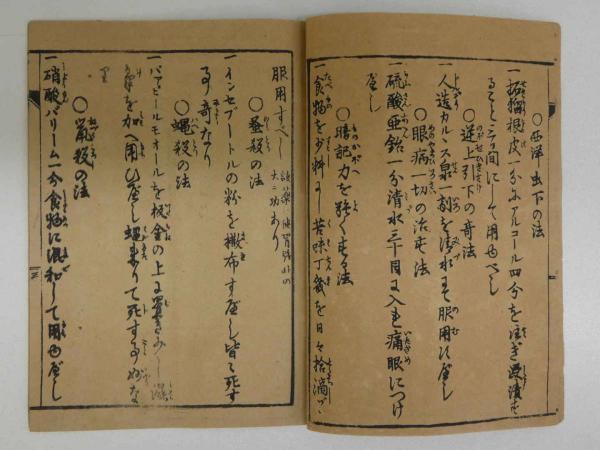 〇西洋虫下の法
一柘榴根皮一分にアルコール四分を注ぎ浸漬す
ること三日間にして用ゆべし
〇逆上引下の奇法
一人造カルンス泉一剤を清水にて服用すべし
〇眼病一切の治する法
一硫酸亜鉛一分清水三十目に入れ痛眼につけ
べし
〇暗記力を強くする法
一食物を少料にし苦味丁幾を日々拾滴づゝ
服用すべし
大に功あり
〇蚤殺の法
一インセブートルの粉を撒布すべし皆々死す
る奇なり
〇蝿殺の法
一パアピールモオールを板金の上に置き少し
を加へ用ひべし蝿来りて死する妙な
り
〇鼠殺の法
一硝酸バリーム一分食物に混和して用ゆべし